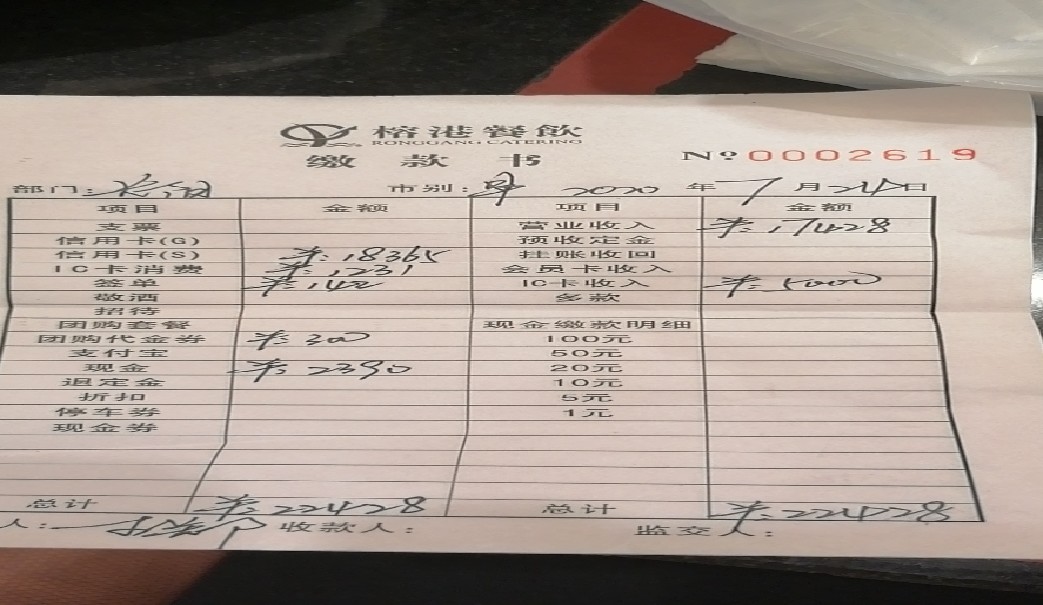 榕港餐飲
RONGGANG CATERING
缴 款 书 Nº 0002619
部门: 市别: 早 2020 年 7 月 24 日
项目 金额 项目 金额
支票 营业收入 ¥:17428
信用卡(G) 预收定金
信用卡(S) ¥:18365 挂账收回
IC卡消费 ¥:1231 会员卡收入
签单 ¥:142 IC卡收入 ¥:5000
敬酒 多款
招待
团购套餐 现金缴款明细
团购代金券 ¥:300 100元
支付宝 50元
现金 ¥:2390 20元
退定金 10元
折扣 5元
停车券 1元
现金券
总计 ¥:22428 总计 ¥:22428
人: 收款人: 监交人: